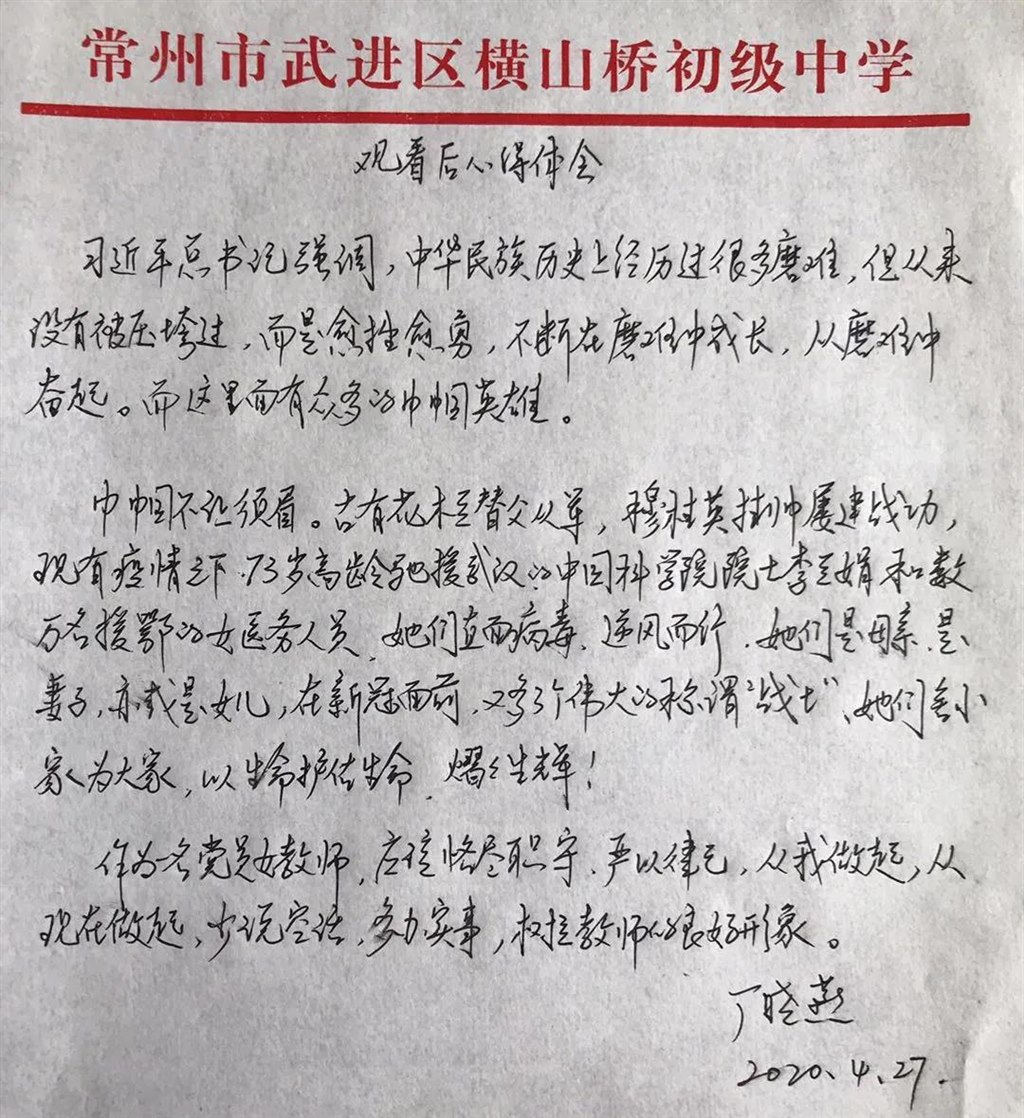 常州市武进区横山桥初级中学
观看后心得体会
习近平总书记强调，中华民族历史上经历过很多磨难，但从来
没有被压垮过，而是愈挫愈勇，不断在磨难中成长，从磨难中
奋起。而这里面有众多的巾帼英雄。
巾帼不让须眉。古有花木兰替父从军，穆桂英挂帅屡建战功，
现有疫情之下，73岁高龄驰援武汉的中国科学院院士李兰娟和数
万名援鄂的女医务人员，她们直面病毒、逆风而行，她们是母亲，是
妻子，亦或是女儿，在新冠面前，又多了个伟大的称谓“战士”、她们舍小
家为大家，以生命护佑生命，熠熠生辉！
作为一名党员女教师，应该恪尽职守、严以律己，从我做起，从
现在做起，少说空话，多办实事，树立教师的良好形象。
丁晓燕
2020.4.27.